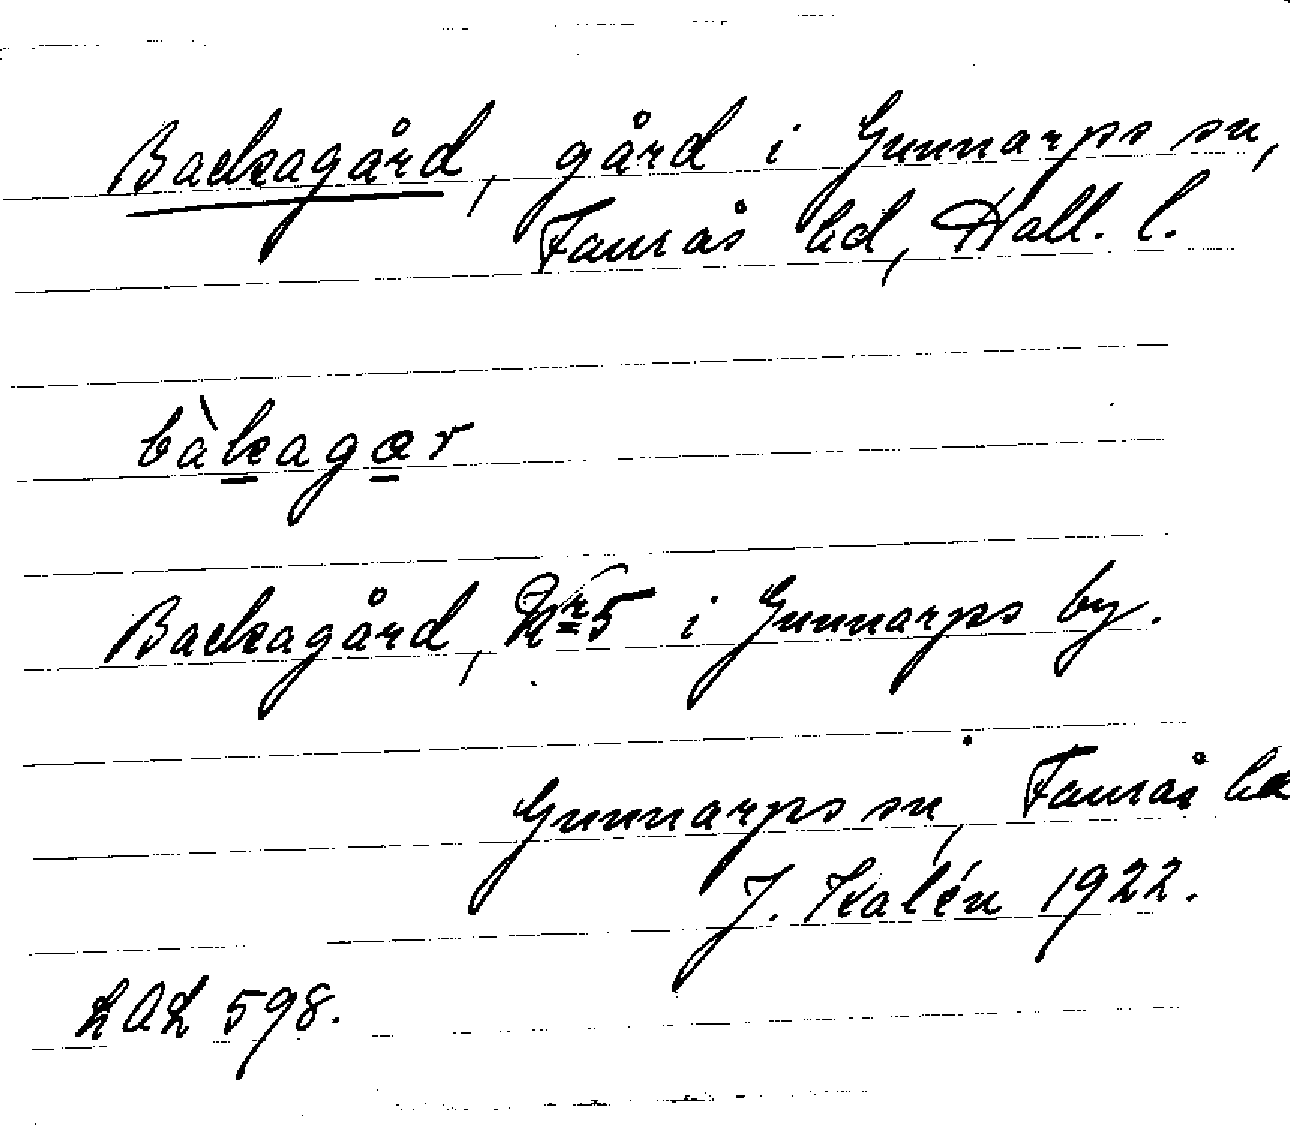 Backagård, gård i Gunnarps sn,
Faurås hd, Hall. l.
bàkagær
Backagård, Nr 5 i Gunnarps by.
Gunnarps sn, Faurås hd
J. Kalén 1922.
LAL 598.